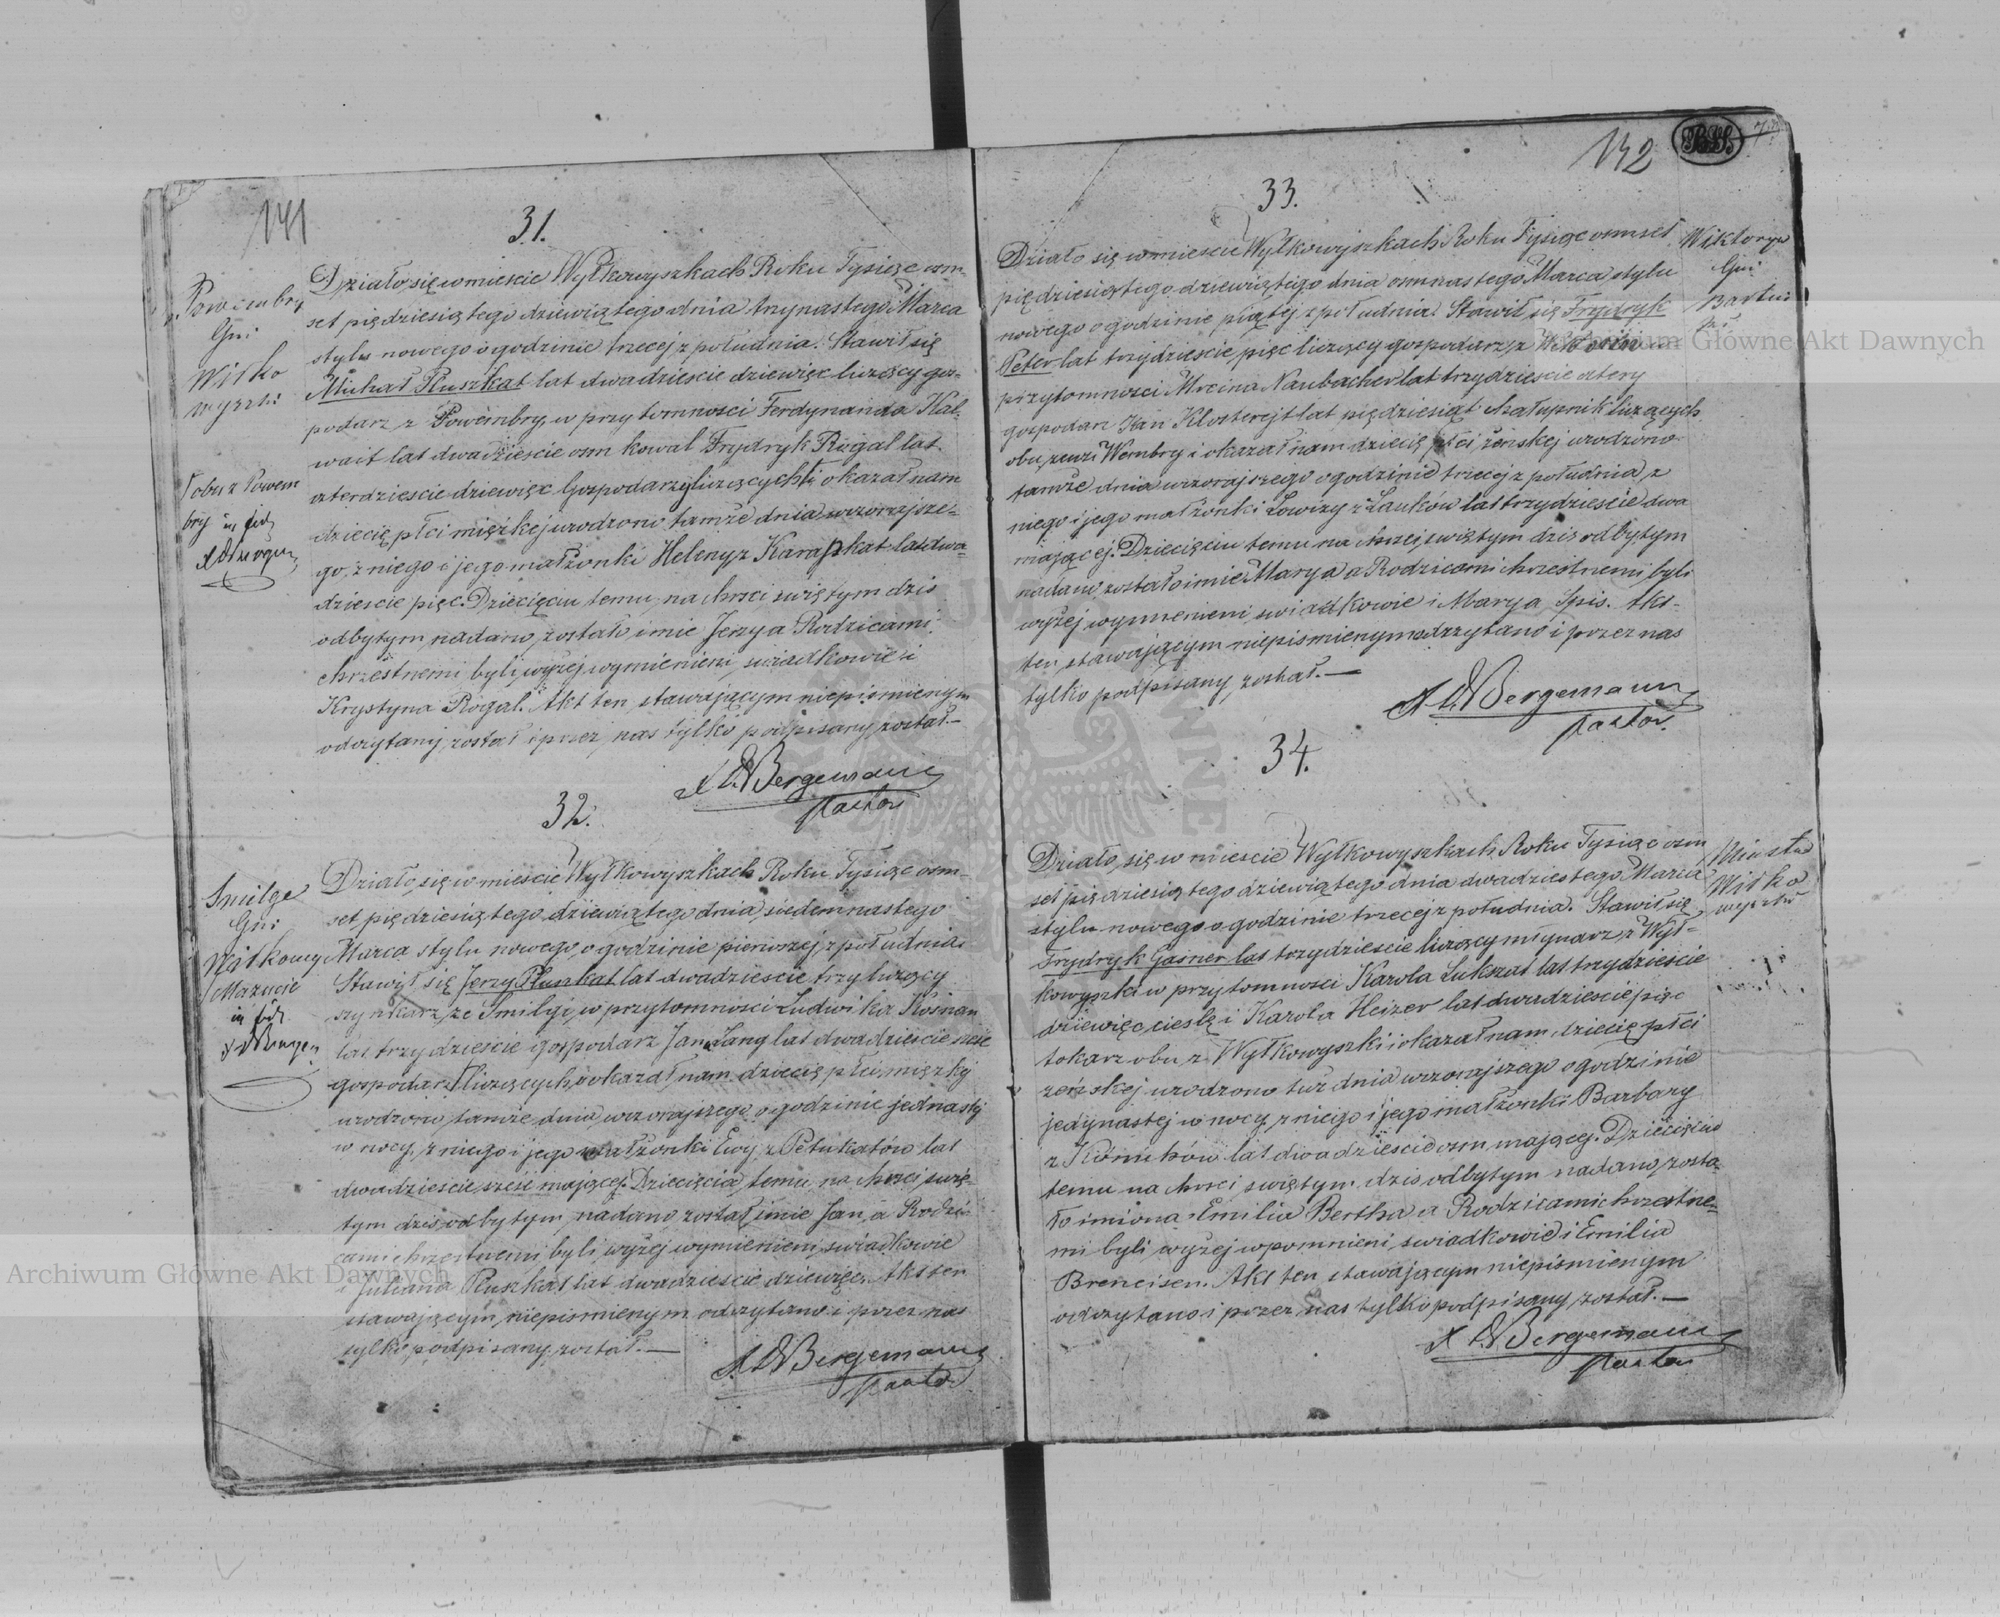 141
31.
Powembry
Gni
Wiłko
wyszki
Działo się w mieście Wyłkowyszkach Roku Tysiąc ośm-
set pięćdziesiątego dziewiątego dnia trzynastego Marca
stylu nowego o godzinie trzeciej z południa. Stawił się
Michał Ruszkat lat dwadzieście dziewięć liczący gos-
podarz z Powembry, w przytomności Ferdynanda Kal-
wait lat dwadzieście ośm kowal Frydryk Rogal lat
czterdzieście dziewięć Gospodarz liczących i okazał nam
dziecię płci męzkiej urodzone tamże dnia wczorajsze-
go, z niego i jego małżonki Heleny z Karapkat lat dwa-
dzieście pięć. Dziecięciu temu na chrzci świętym dziś
odbytym nadano, zostało imie Jerzy a Rodzicami
chrzestnemi byli wyżej wymienieni, świadkowie i
Krystyna Rogal. Akt ten stawającym niepismienym
odczytany, został i przez nas tylko podpisany, został.—
obu z Powem
bry in fid
Bergemann
Pastor
32.
Smilge
Gni
Wiłkowy
Mazucie
in fid.
Działo się w mieście Wyłkowyszkach Roku Tysiąc ośm-
set pięćdziesiątego dziewiątego dnia siedemnastego
Marca stylu nowego, o godzinie pierwszej, z południa.
Stawił się Jerzy Plunkat lat dwadzieście trzy liczący
szynkarz, ze Smilgi, w przytomności Ludwika Kosman
lat trzydzieście gospodarz Jan Lang lat dwadzieście sześć
gospodarz liczących, i okazał nam dziecię płci męzkiej
urodzone tamże dnia wczorajszego o godzinie jednastej
w nocy, z niego i jego małżonki Ewy z Petukatów lat
dwadzieście sześć mającej. Dziecięciu temu na chrzci świę-
tym dziś odbytym nadano, został imie Jan, a Rodzi-
cami chrzestnemi byli wyżej wymienieni, świadkowie
i Juliana Ruszkat lat dwadzieście dziewięć. Akt ten
stawającym niepismienym odczytano i przez nas
tylko podpisany, został.—
Bergemann
Pastor
142
33.
Wiktorya
Gni
Bartni
Działo się w mieście Wyłkowyszkach Roku Tysiąc ośmset
pięćdziesiątego dziewiątego dnia ośmnastego Marca, stylu
nowego o godzinie piątej z południa. Stawił się Frydryk
Peter lat trzydzieście pięć liczący gospodarz, z
przytomności Mrcina Naubacher lat trzydzieście cztery
gospodarz Jan Klosterejt lat pięćdziesiąt chałupnik liczących
obu, ze wsi Wembry i okazał nam dziecię płci żeńskiej urodzono
tamże dnia wczorajszego o godzinie trzeciej z południa, z
niego i jego małżonki Lowizy z Lauków lat trzydzieście dwa
mającej. Dziecięciu temu na chrzci, świętym dziś odbytym
nadano, zostało imie Marya a Rodzicami chrzestnemi byli
wyżej wymienieni świadkowie i Marya Spis. Akt
ten, stawającym niepismienym odczytano i przez nas
tylko podpisany, został.—
Bergemann
Pastor.
34.
Miasta
Wiłko
wyszki
Działo, się w mieście Wyłkowyszkach, Roku Tysiąc ośm
set pięćdziesiątego dziewiątego dnia dwadziestego Marca
stylu nowego o godzinie trzeciej z południa. Stawił się
Frydryk Gasner lat trzydzieście liczący młynarz, z Wył-
kowyszki w przytomności Karola Lukszat lat trzydzieście
dziewięć cieślę i Karola Heizer lat dwadzieście pięć
tokarz obu z Wyłkowyszki i okazał nam, dziecię płci
żeńskiej urodzono tuż dnia wczorajszego o godzinie
jedynastej w nocy, z niego i jego małżonki Barbary
z Kómuków lat dwadzieście ośm mającej. Dziecięciu
temu na chrzci, świętym dziś odbytym nadano, zosta-
ło imiona Emilia Bertha a Rodzicami chrzestne-
mi byli, wyżej wpomnieni, świadkowie i Emilia
Breneisen. Akt ten stawającym niepismienym
odczytano i przez nas tylko podpisany, został.—
Bergemann
Pastor
Archiwum Główne Akt Dawnych
Archiwum Główne Akt Dawnych